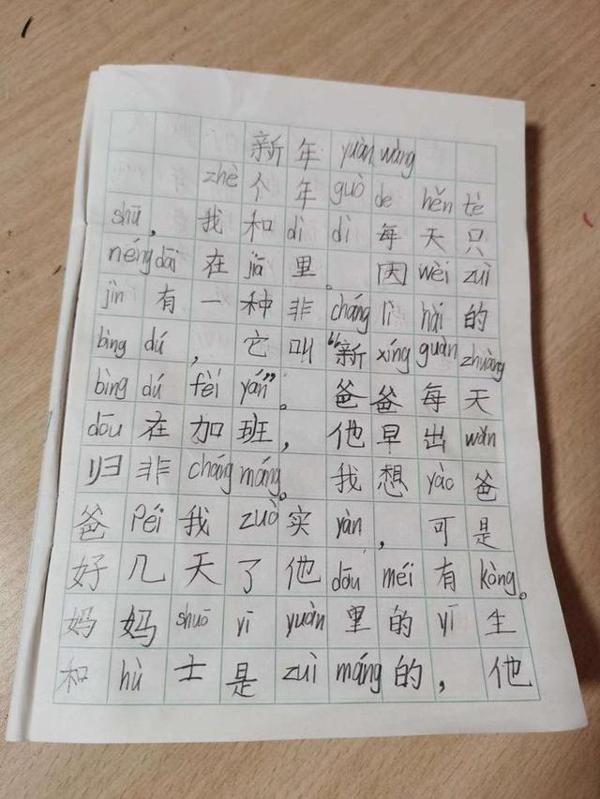 新年 yuàn wàng
zhè 个年 guò de hěn tè
shū，我和 dì dì 每天只
néng dāi 在 jiā 里。因 wèi zuì
jìn 有一种非 cháng lì hài 的
bìng dú，它叫“新 xíng guān zhuàng
bìng dú fèi yán”。爸爸每天
dōu 在加班，他早出 wǎn
归非 cháng máng。我想 yào 爸
爸 Péi 我 zuò 实 yàn，可是
好几天了他 dōu méi 有 kòng。
妈妈 shuō yī yuàn 里的 yī 生
和 hù 士是 zuì máng 的，他